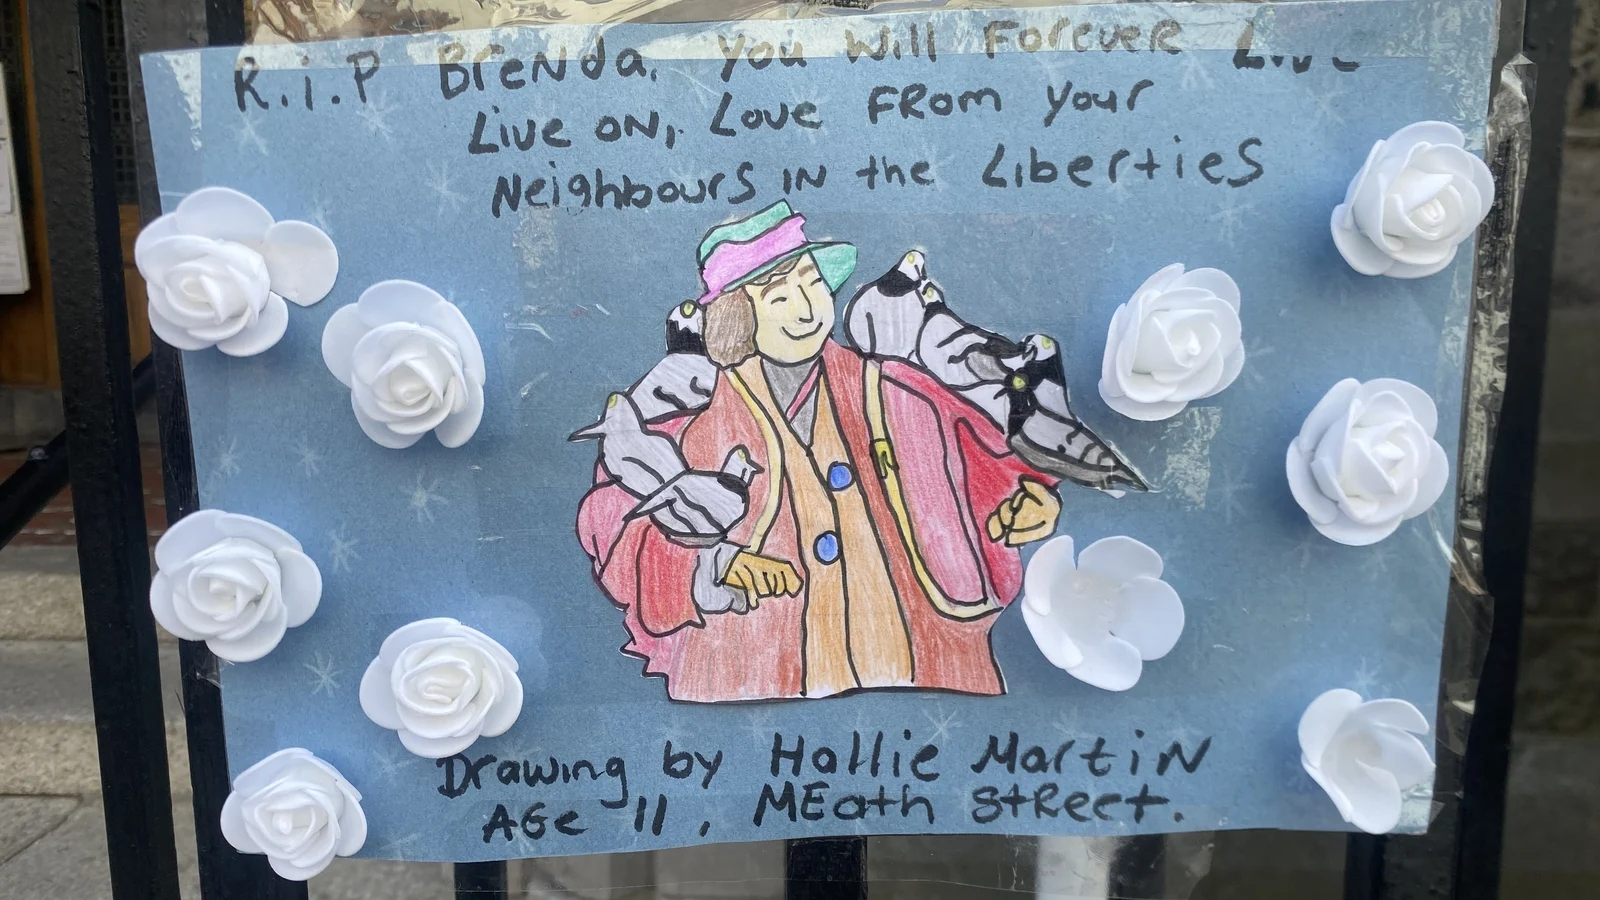 R.i.P Brenda. You Will Forever Live
Live on, Love From your
Neighbours in the Liberties
Drawing by Hallie Martin
Age 11, Meath Street.